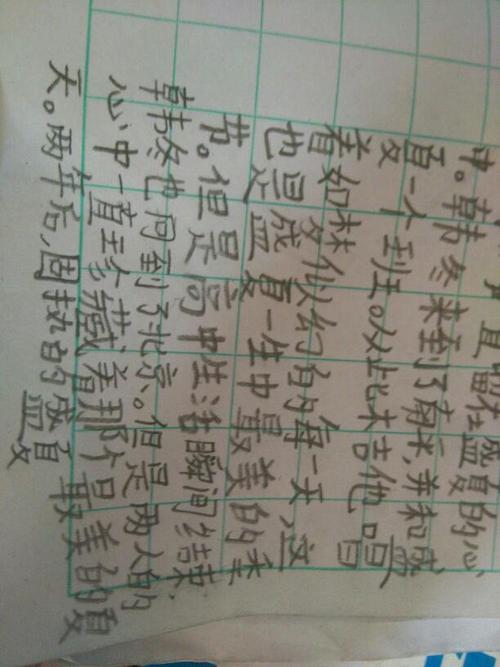 直留在盛夏的心
中。韩冬来到了南禾,并和盛
夏一个班。从此木吉他唱
着如梦似幻的每一天,这
也是盛夏一生中最美的季
节。但是高中生活瞬间结束,
韩冬也回到了北京。但是两人的
心中一直珍藏着那个最美的夏
天。两年后,固执的盛夏